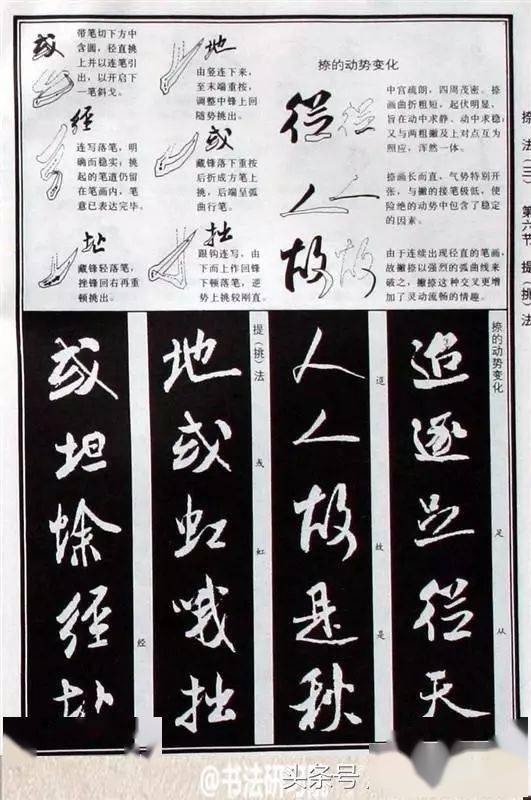 捺法(三) 第六节 提(挑)法
捺的动势变化
從
中宫疏朗,四周茂密。捺
画曲折粗短,起伏明显,
旨在动中求静、动中求稳,
又与两粗撇及上对点互为
照应,浑然一体。
人
捺画长而直,气势特别开
张,与撇的接笔极低,使
险绝的动势中包含了稳定
的因素。
故
由于连续出现径直的笔画,
故撇捺以强烈的弧曲线来
破之,撇捺这种交叉更增
加了灵动流畅的情趣。
地
由竖连下来,
至末端重按,
调整中锋上回
随势挑出。
或
藏锋落下重按
后折成方笔上
挑,后端呈弧
曲行笔。
拙
跟钩连写,由
下而上作回锋
下顿落笔,逆
势上挑较刚直。
或
带笔切下方中
含圆,径直挑
上并以连笔引
出,以开启下
一笔斜戈。
經
连写落笔,明
确而稳实,挑
起的笔道仍留
在笔画内,笔
意已表达完毕。
址
藏锋轻落笔,
挫锋回右再重
顿挑出。
捺的动势变化
足
从
追逐足從天
道
故
是
人人故是秋
提(挑)法
或
虹
地或虹哦拙
经
或坦蜍經
@书法研
头条号